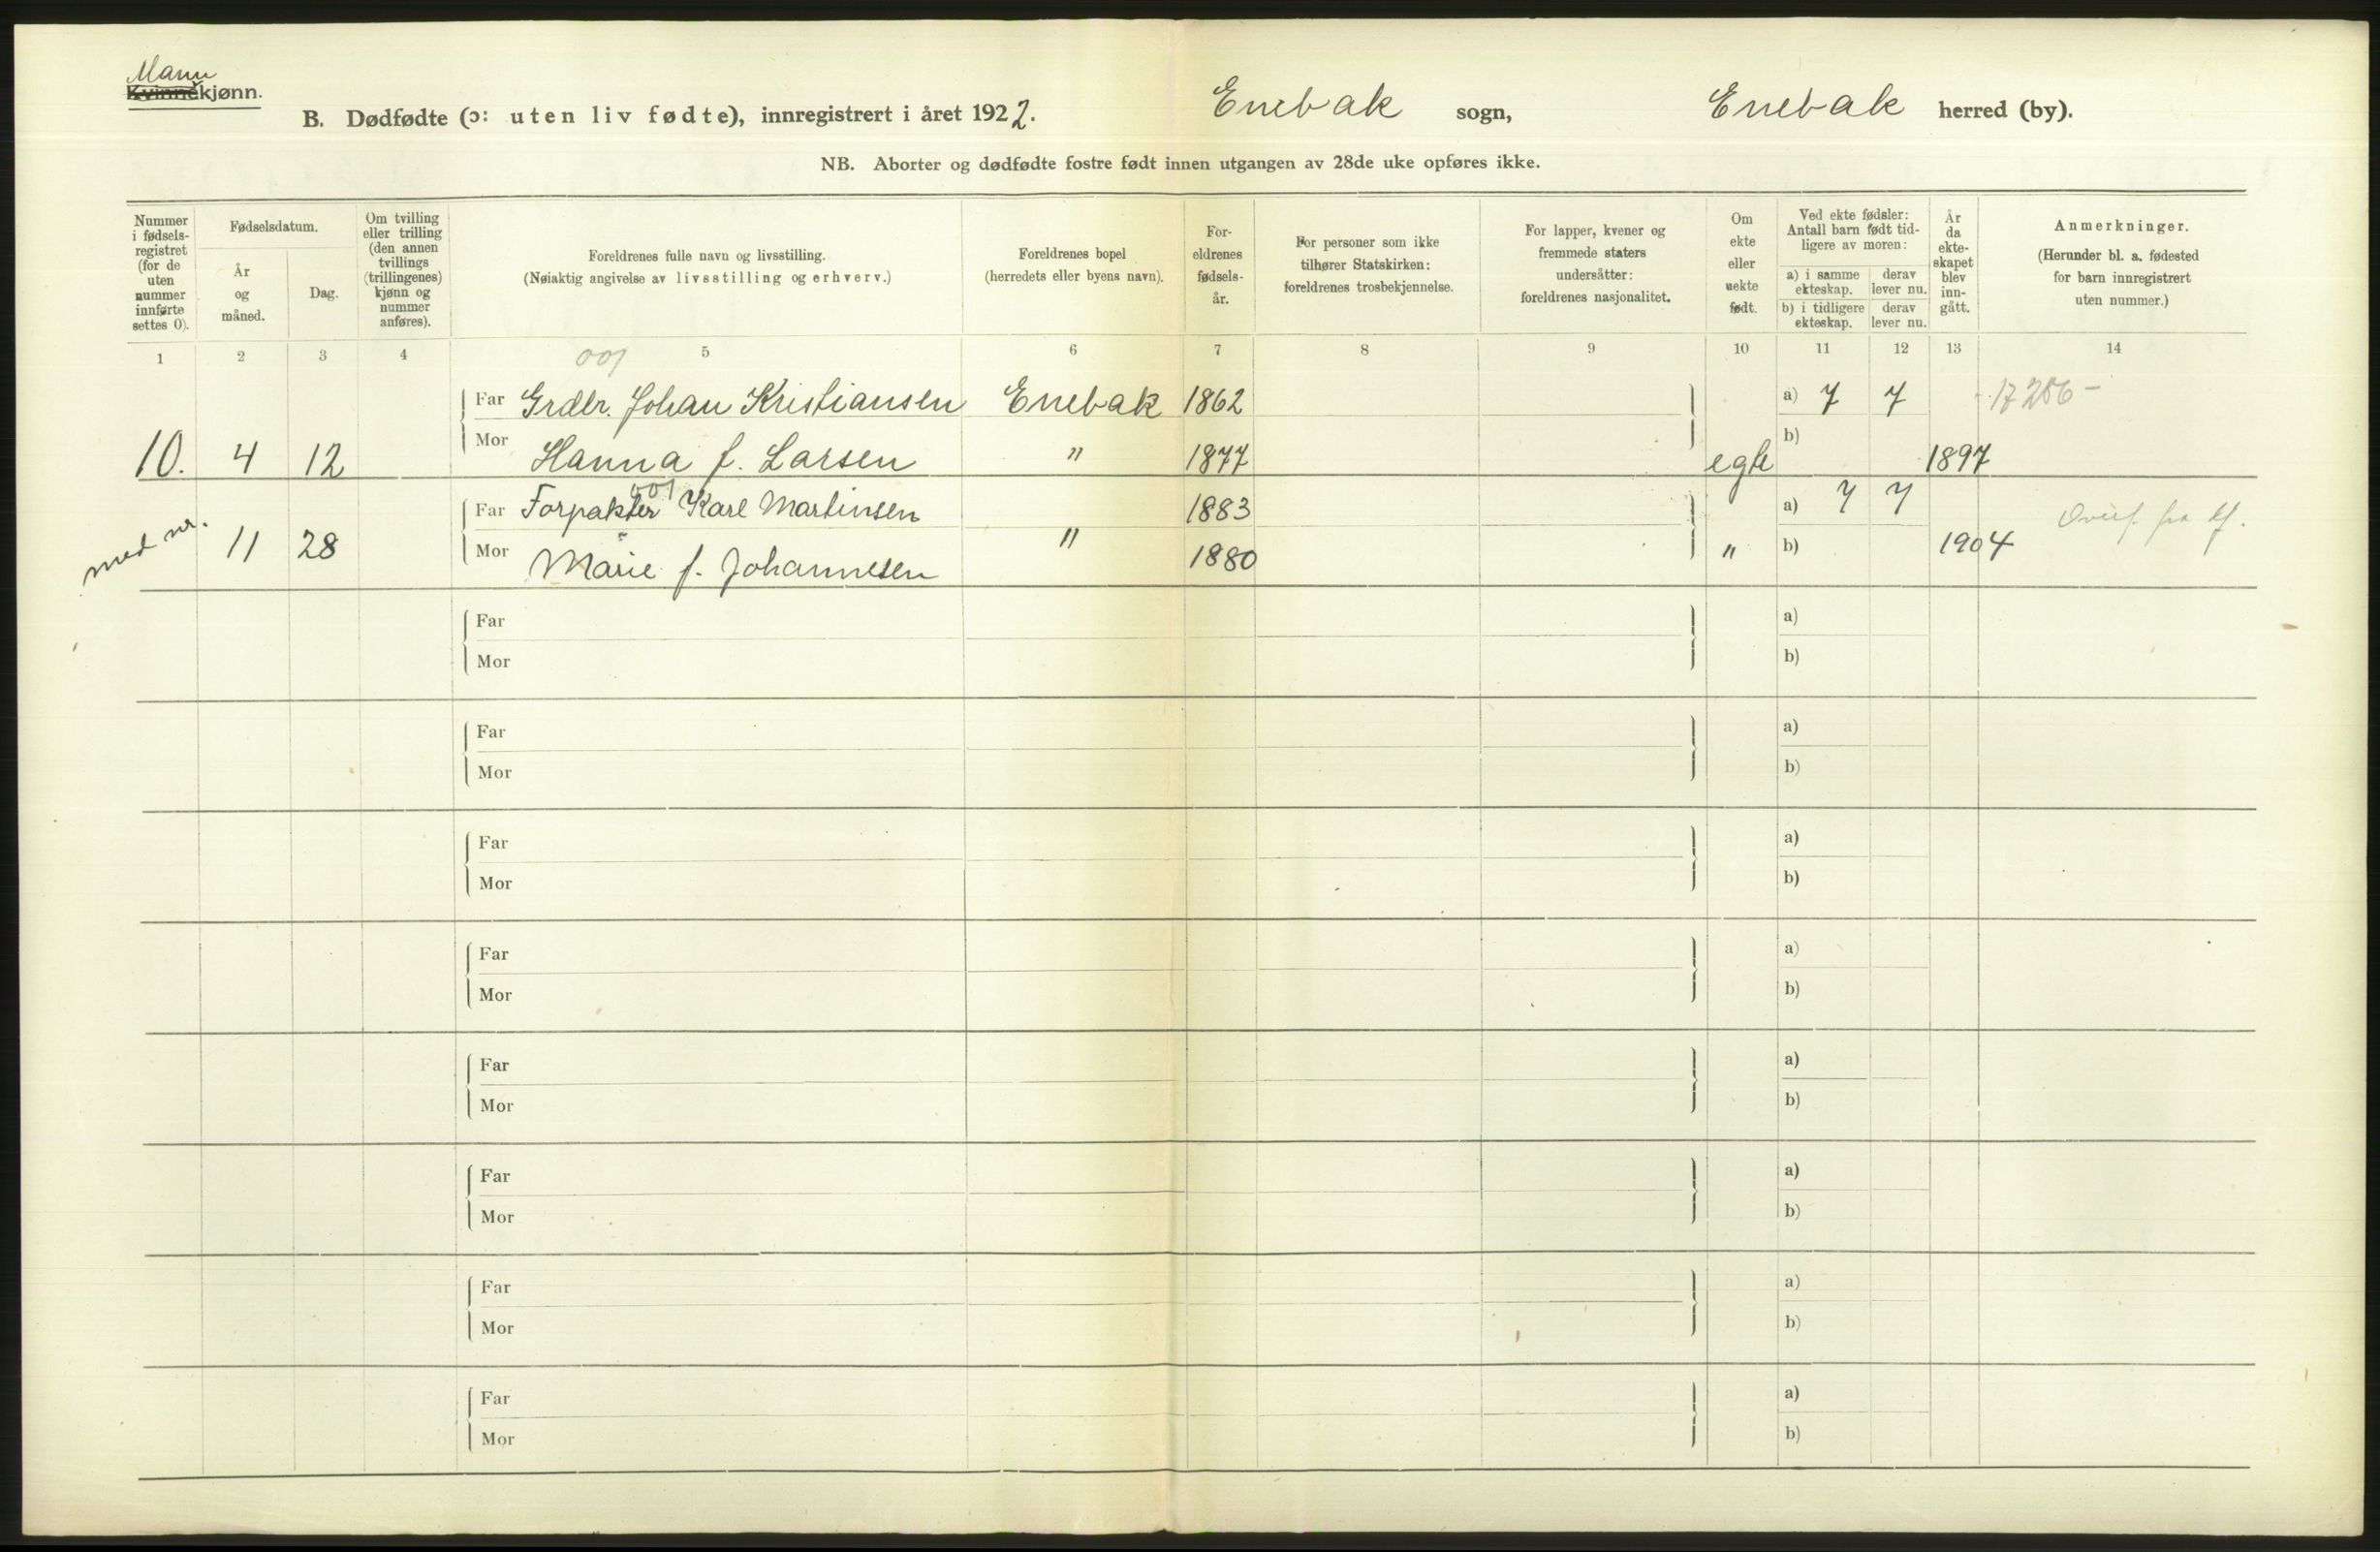 Mann
Kvinnekjønn.
B. Dødfødte (ɔ: uten liv fødte), innregistrert i året 1922. Enebak sogn, Enebak herred (by).
NB. Aborter og dødfødte fostre født innen utgangen av 28de uke opføres ikke.
Nummer i fødsels-registret (for de uten nummer innførte settes 0).
Fødselsdatum.
År og måned.
Dag.
Om tvilling eller trilling (den annen tvillings (trillingenes) kjønn og nummer anføres).
Foreldrenes fulle navn og livsstilling.
(Nøiaktig angivelse av livsstilling og erhverv.)
Foreldrenes bopel
(herredets eller byens navn).
For-eldrenes fødsels-år.
For personer som ikke tilhører Statskirken: foreldrenes trosbekjennelse.
For lapper, kvener og fremmede staters undersåtter: foreldrenes nasjonalitet.
Om ekte eller uekte født.
Ved ekte fødsler: Antall barn født tid-ligere av moren:
a) i samme ekteskap. derav lever nu.
b) i tidligere ekteskap. derav lever nu.
År da ekte-skapet blev inn-gått.
Anmerkninger.
(Herunder bl. a. fødested for barn innregistrert uten nummer.)
1 2 3 4 5 6 7 8 9 10 11 12 13 14
001
Far Grdbr. Johan Kristiansen Enebak 1862 a) 7 7 17286 -
10. 4 12 Mor Hanna f. Larsen " 1877 egte b) 1897
001
Far Forpakter Karl Martinsen 1883 a) 7 7
med nr. 11 28 Mor Marie f. Johannesen " 1880 " b) 1904
Far a)
Mor b)
Far a)
Mor b)
Far a)
Mor b)
Far a)
Mor b)
Far a)
Mor b)
Far a)
Mor b)
Far a)
Mor b)
Far a)
Mor b)